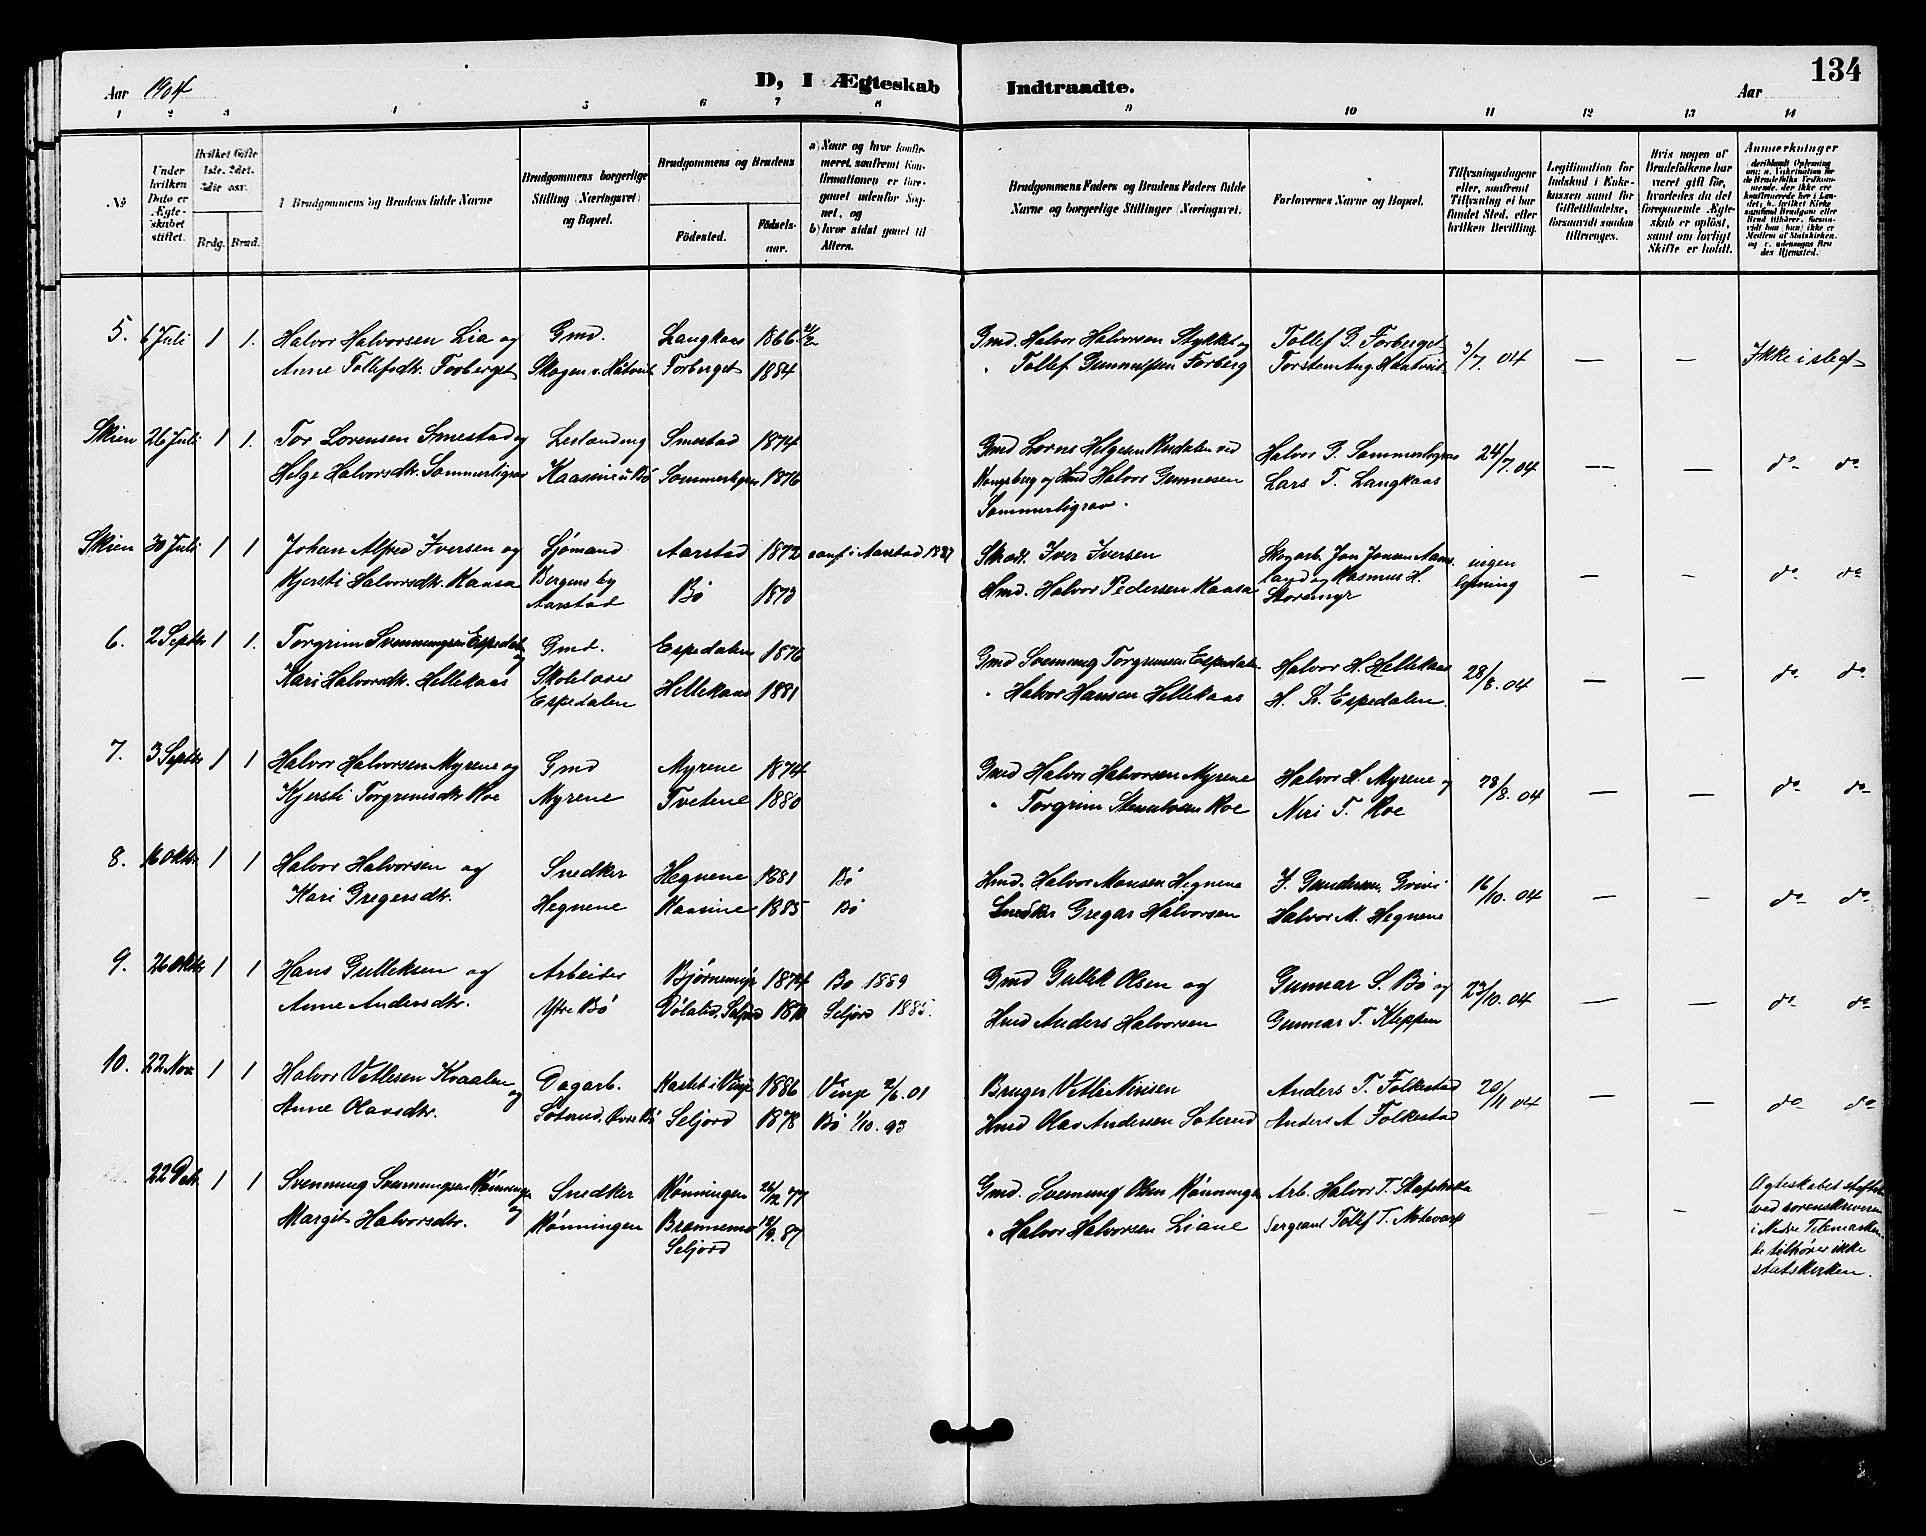 134
Aar 1904
D, I Ægteskab Indtraadte.
Aar
1 2 3 4 5 6 7 8 9 10 11 12 13 14
№
Under hvilken Dato er Ægteskabet stiftet.
Hvilket Gifte 1ste, 2det, 3die osv.
Brdg. Brud.
Brudgommens og Brudens fulde Navne
Brudgommens borgerlige Stilling (Næringsvei) og Bopæl.
Brudgommens og Brudens
Fødested.
Fødselsaar.
a) Naar og hvor konfirmeret, saafremt Konfirmationen er foregaaet udenfor Sognet, og
b) hvor sidst gaaet til Alters.
Brudgommens Faders og Brudens Faders fulde Navne og borgerlige Stillinger (Næringsvei).
Forlovernes Navne og Bopæl.
Tillysningsdagene eller, saafremt Tillysning ei har fundet Sted, efter hvilken Bevilling.
Legitimation for Indskud i Enkekassen samt for Giftetilladelse, forsaavidt saadan tiltrænges.
Hvis nogen af Brudefolkene har været gift før, hvorledes da det foregaaende Ægteskab er opløst, samt om lovligt Skifte er holdt.
Anmærkninger
5. 6 Juli 1 1. Halvor Halvorsen Lia og Gmd. Langkaas 1866 Gmd. Halvor Halvorsen Stykket og Tollef G. Forberget 3/7 04 — — Ikke i slegt
Anne Tollefsdtr. Forberget Skogen Forberget 1884 " Tollef Gunnulfsen Forberg Torstein Aug.
Skien 26 Juli 1 1. Tor Lorensen Smestad og Smestad 1874 Gmd Lorns Helgesen Rudalen ved Halvor G. Sommerligrav 24/7.04 — — do do
Helge Halvorsdtr. Sommerligrav Kaasine i Bø Sommerligrav 1876 Kongsberg og Hmd Halvor Gunnesen Lars T. Langkaas
Sommerligrav.
Skien 30 Juli 1 1 Johan Alfred Iversen og Sjømand Aarstad 1872 conf i Aarstad 1887 Iver Iversen Skogarb. Jon Jonsen ingen — — do do
Kjersti Halvorsdtr. Kaasa Bergens by Bø 1873 Hmd. Halvor Pedersen Kaasa land og Rasmus H. lysning
Aarstad Storemyr
6. 2 Septbr 1 1. Torgrim Svenningsen Espedalen og Gmd. Espedalen 1876 Gmd Svenung Torgrimsen Espedalen Halvor H. Hellekaas 28/8.04 — — do do
Kari Halvorsdtr. Hellekaas Skolelærer Hellekaas 1881 " Halvor Hansen Hellekaas H. S. Espedalen
Espedalen
7. 3 Septbr 1 1 Halvor Halvorsen Myrene og Gmd Myrene 1874 Gmd Halvor Halvorsen Myrene Halvor H. Myrene og 28/8.04 — — do do
Kjersti Torgrimsdtr Roe Myrene Tvetene 1880 " Torgrim Steinulvsen Roe Niri T. Roe
8. 16 Oktbr 1 1 Halvor Halvorsen og Snedker Hegnene 1881 Bø Hmd. Halvor Monsen Hegnene J. Gundersen Grivi 16/10.04 — — do do
Kari Gregersdtr. Hegnene Kaasine 1885 Bø Snedker Gregar Halvorsen Halvor M. Hegnene
9. 26 Oktbr 1 1 Hans Gulleksen og Arbeider Bjørnemyr 1874 Bø 1889 Gmd Gullik Olsen og Gunnar S. Bø og 23/10.04 — — do do
Anne Andersdtr. Ytre Bø Seljord 1870 Seljord 1885. Hmd Anders Halvorsen Gunnar T. Kleppen
10. 22 Nov 1 1 Halvor Vetlesen Kvaalen og Dagarb. i Vinje 1886 Vinje 2/6.01 Bruger Vetle Nirisen Anders T. Folkestad 20/11 04 — — do do
Anne Olavsdtr. Soterud, Øvre Bø Seljord 1878 Bø 1/10.93 Hmd Olav Andersen Soterud Anders A Folkestad
22 Dec 1 1 Svennung Svennungsen Rønningen og Snedker Rønningen 26/12 77 Gmd. Svennung Olsen Rønningen Arb. Halvor T. — — Ægteskabet stiftet
Margit Halvorsdtr. Rønningen Brønnemo 12/9.87 " Halvor Halvorsen Liane Sergeant Tollef T. ved sorenskriveren
Seljord i Nedre Telemarken.
De tilhører ikke
statskirken.